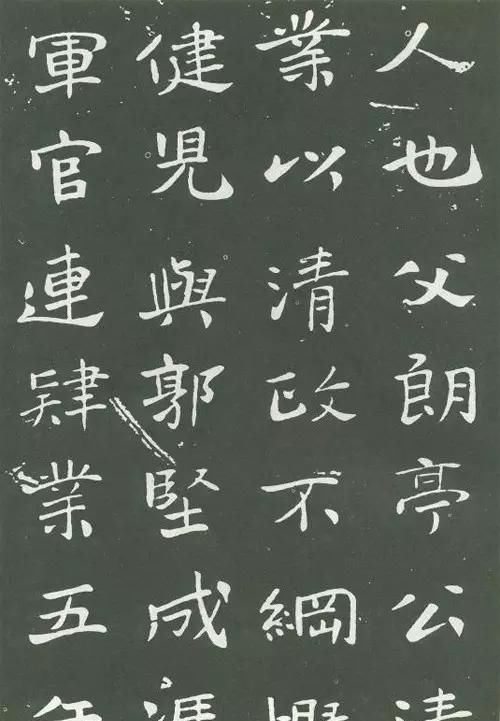 人也父朗亭公清
業以清政不綱
健児與郭堅成馮
軍官連肄業五年